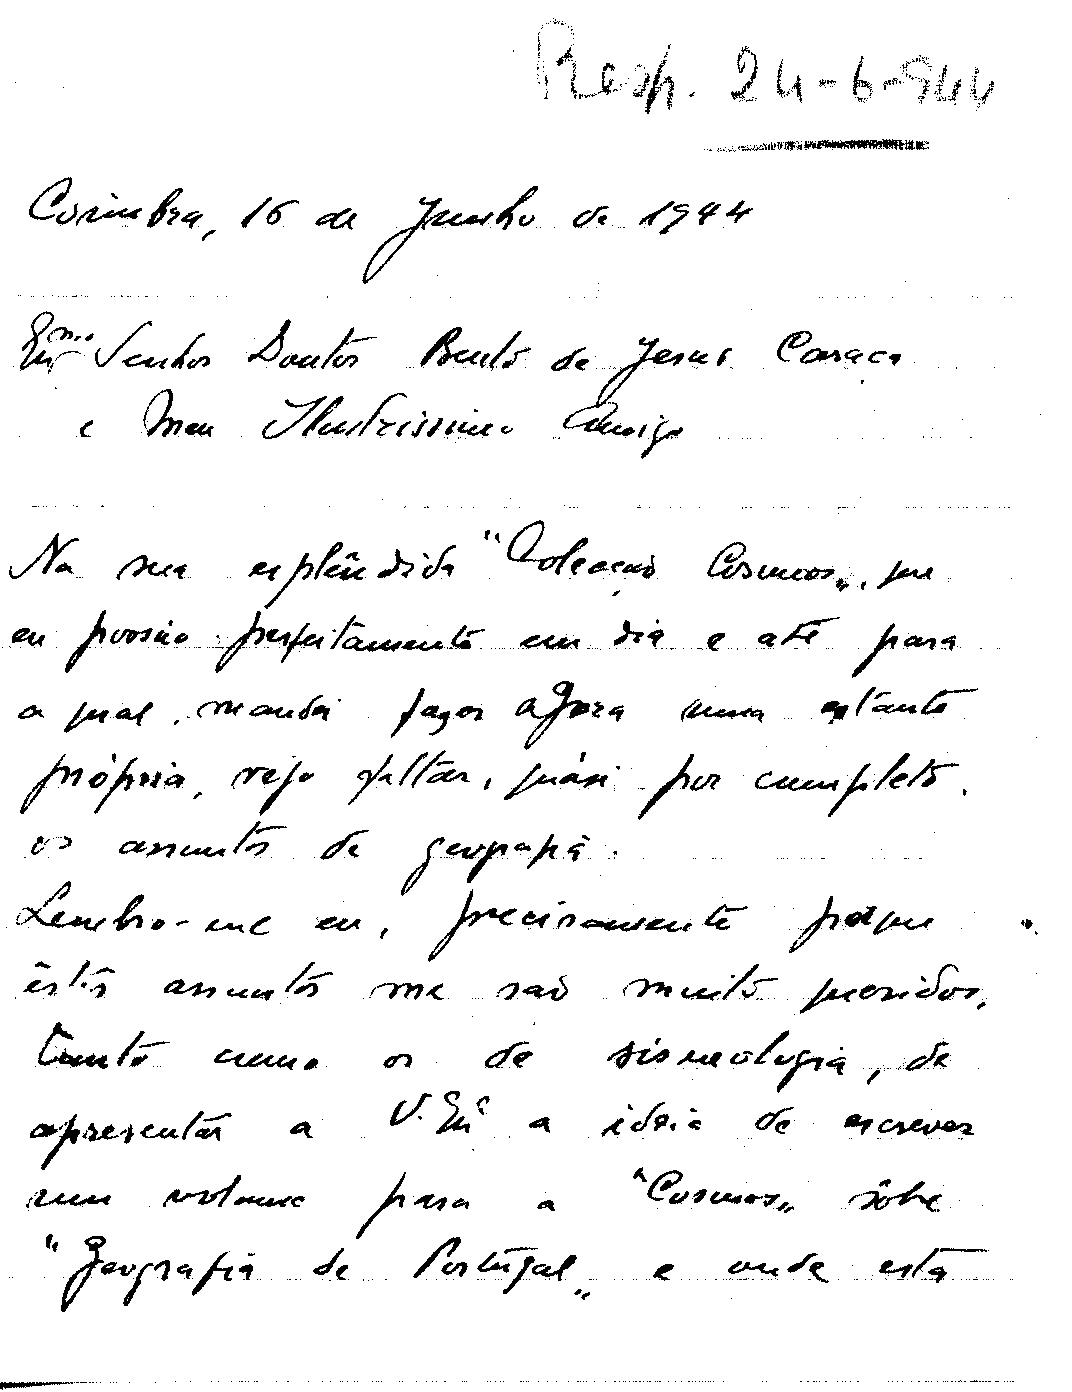 Resp. 24-6-944
Coimbra, 16 de Junho de 1944
Exmo. Senhor Doutor Bento de Jesus Caraça
e Meu Ilustrissimo Amigo
Na sua esplêndida "Colecção Cosmos", que
eu possuo perfeitamente em dia e até para
a qual mandei fazer agora uma estante
própria, vejo faltar, quási por completo,
os assuntos de geografia.
Lembro-me eu, precisamente porque
êstes assuntos me são muito queridos,
tanto como os de sismologia, de
apresentar a V. Exª a ideia de escrever
um volume para a "Cosmos" sôbre
"Geografia de Portugal" e onde esta